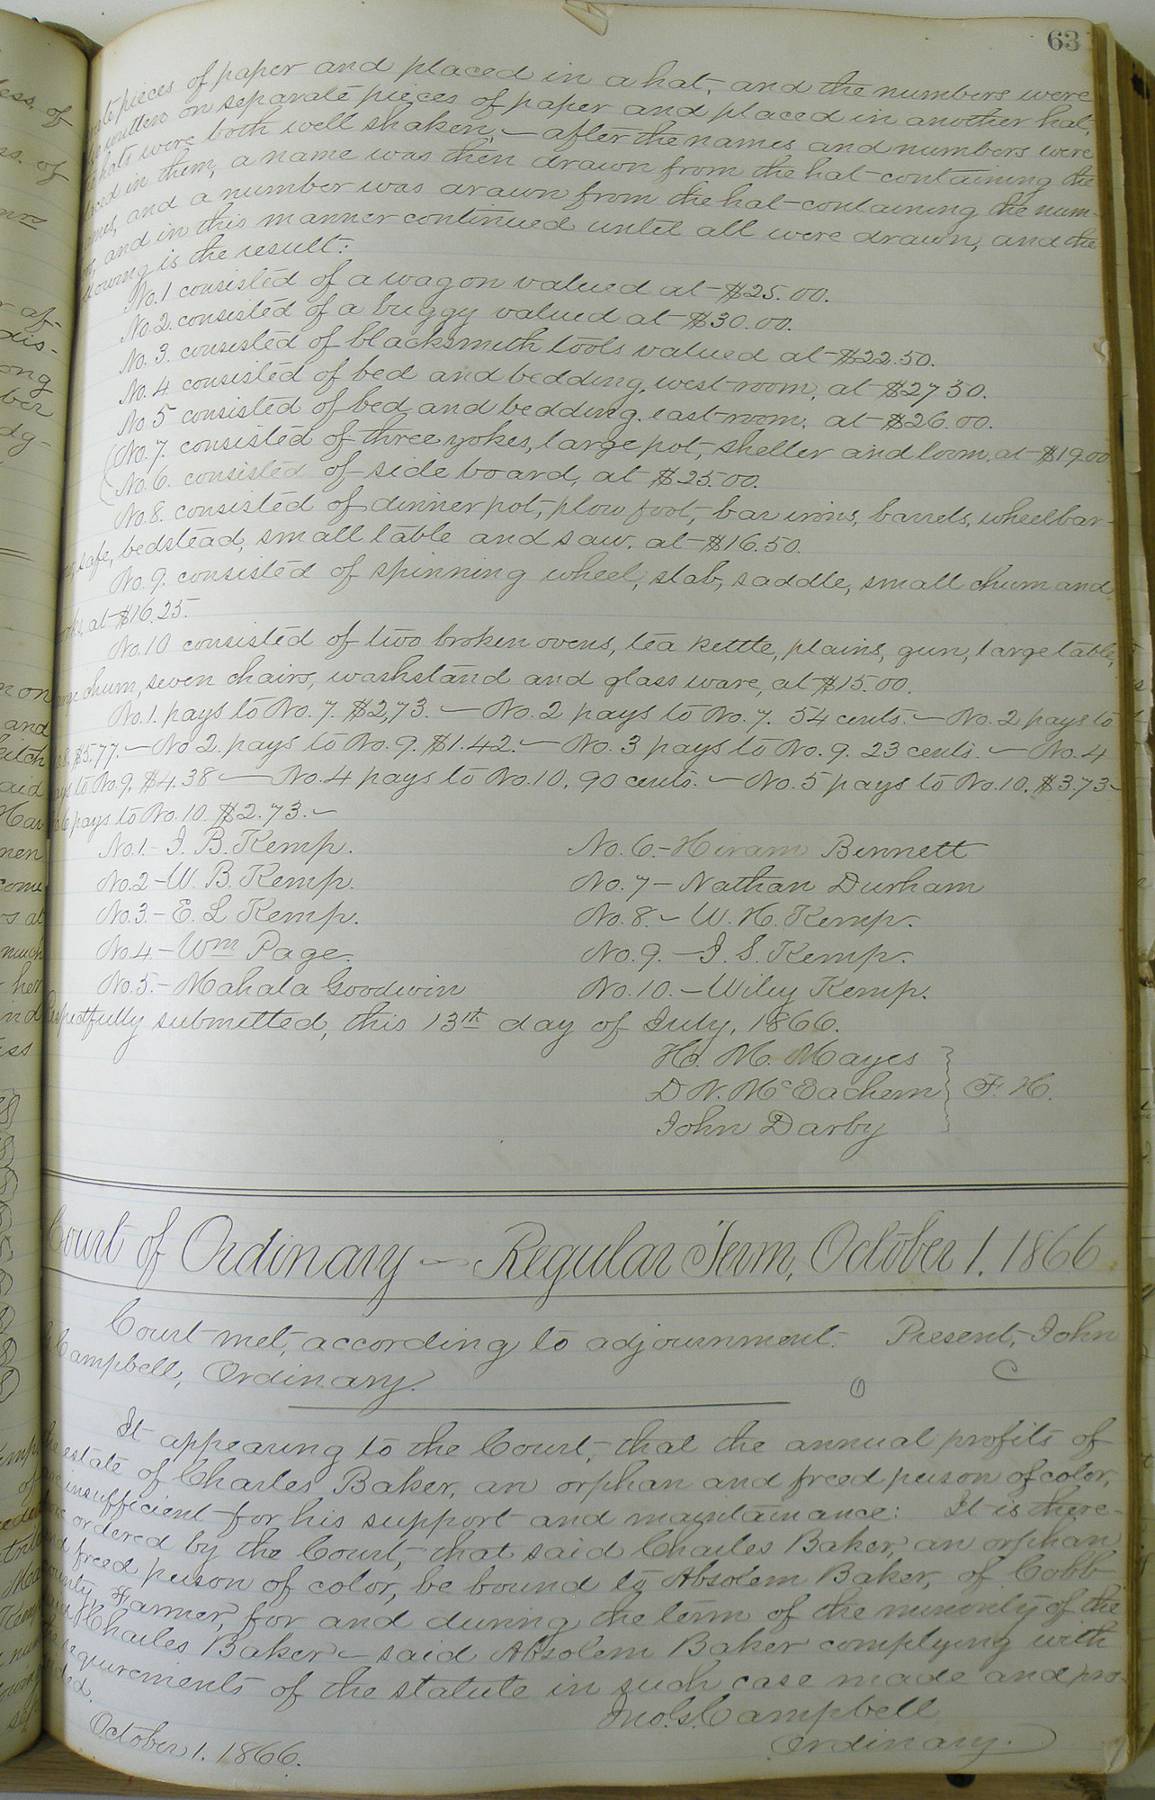 63
pieces of paper and placed in a hat, and the numbers were
written on separate pieces of paper and placed in another hat,
hats were both well shaken, — after the names and numbers were
placed in them, a name was then drawn from the hat containing the
and a number was drawn from the hat containing the num-
and in this manner continued until all were drawn, and the
following is the result:
No. 1 consisted of a wagon valued at $25.00.
No. 2. consisted of a buggy valued at $30.00.
No. 3. consisted of blacksmith tools valued at $22.50.
No. 4 consisted of bed and bedding, west room, at $27.50.
No 5 consisted of bed and bedding, east room, at $26.00.
No. 7. consisted of three yokes, large pot, sheller and loom, at $19.00
No. 6. consisted of side board, at $25.00.
No. 8. consisted of dinner pot, plow foot, bar irons, barrels, wheelbar-
safe, bedstead, small table and saw. at $16.50.
No. 9. consisted of spinning wheel, slab, saddle, small churn and
at $16.25.
No. 10 consisted of two broken ovens, tea kettle, plains, gun, large table,
churn, seven chairs, washstand and glass ware, at $15.00.
No. 1. pays to No. 7. $2,73. — No. 2 pays to No. 7. 54 cents. — No. 2 pays to
$5.77. — No 2 pays to No. 9. $1.42. — No. 3 pays to No. 9. 23 cents. — No. 4
pays to No. 9. $4.38 — No. 4 pays to No. 10. 90 cents. — No. 5 pays to No. 10. $3.73 —
pays to No. 10. $2.73. —
No. 1. – J. B. Kemp. No. 6. – Hiram Bennett
No. 2 – W. B. Kemp. No. 7 – Nathan Durham
No. 3 – E. L Kemp. No. 8. – W. H. Kemp.
No. 4. – Wm Page. No. 9. – J. S. Kemp.
No. 5. – Mahala Goodwin No. 10. – Wiley Kemp.
Respectfully submitted, this 13th day of July, 1866.
H. M. Mayes
D. N. McEachern } F. H.
John Darby
Court of Ordinary — Regular Term, October 1. 1866
Court met, according to adjournment. Present, John
Campbell, Ordinary.
It appearing to the Court, that the annual profits of
the estate of Charles Baker, an orphan and freed person of color,
are insufficient for his support and maintainance: It is there-
fore ordered by the Court, that said Charles Baker, an orphan
and freed person of color, be bound to Absolem Baker, of Cobb
County, Farmer, for and during the term of the minority of the
said Charles Baker — said Absolem Baker complying with
the requirements of the statute in such case made and pro-
vided.
Jno. G. Campbell
October 1. 1866. Ordinary.